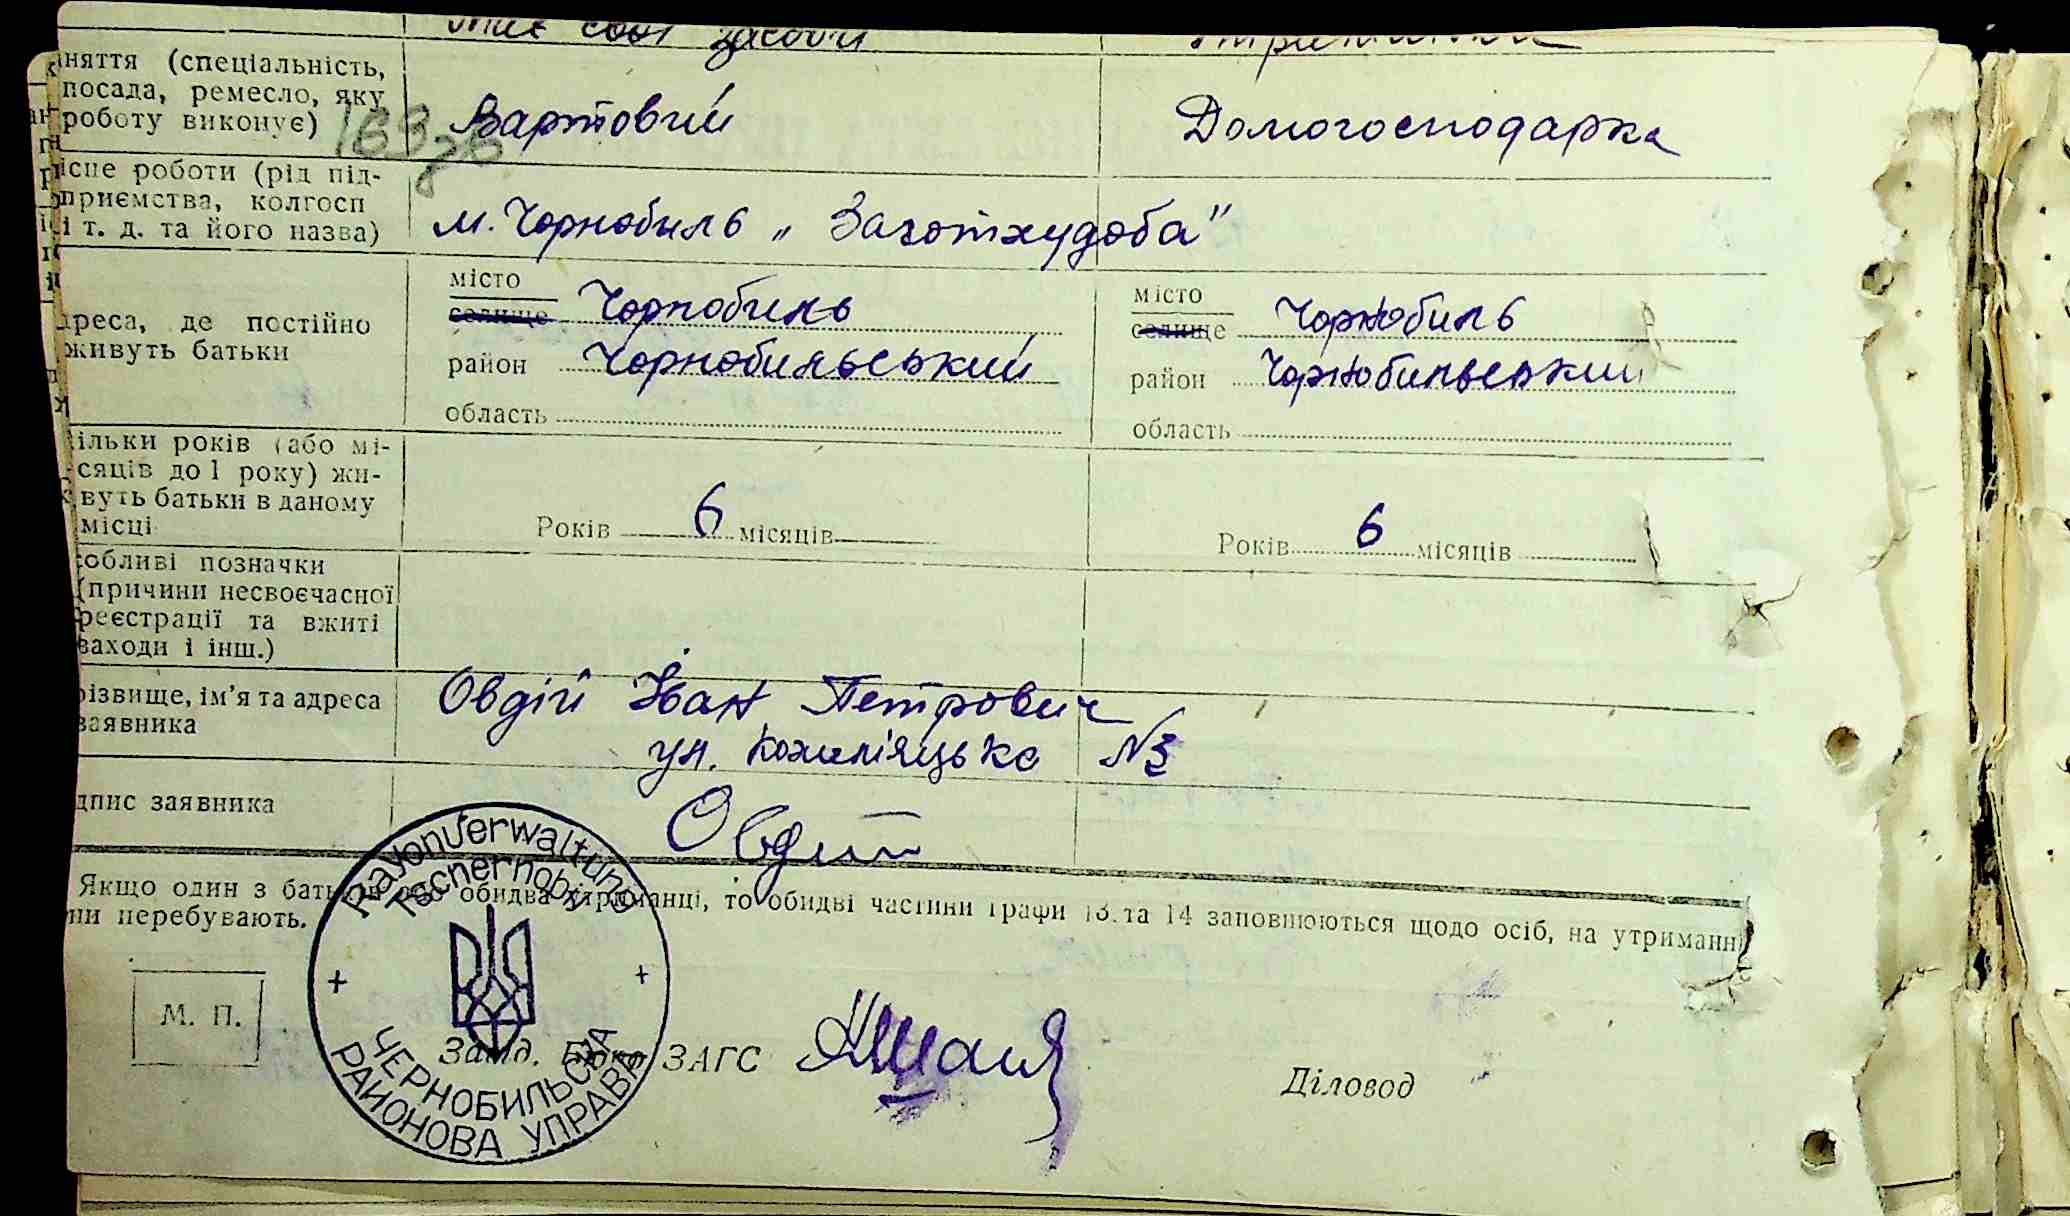 має свої засоби
няття (спеціальність,
посада, ремесло, яку
роботу виконує)
Вартовий
Домогосподарка
ісце роботи (рід під-
приємства, колгосп
і т. д. та його назва)
м. Чорнобиль „Заготхудоба"
дреса, де постійно
живуть батьки
місто
селище Чорнобиль
район Чорнобильський
область
місто
селище Чорнобиль
район Чорнобильський
область
ільки років (або мі-
сяців до 1 року) жи-
вуть батьки в даному
місці
Років 6 місяців
Років 6 місяців
собливі позначки
(причини несвоєчасної
реєстрації та вжиті
заходи і інш.)
різвище, ім'я та адреса
заявника
Овдій Іван Петрович
ул. №3
дпис заявника
Овдій
Якщо один з батьків або обидва утриманці, то обидві частини графи 13 та 14 заповнюються щодо осіб, на утриманні
ни перебувають.
RayonVerwaltung
Tschernobyl
ЧЕРНОБИЛЬСЬКА
РАЙОНОВА УПРАВА
М. П.
Завід. Бюро ЗАГС
Діловод